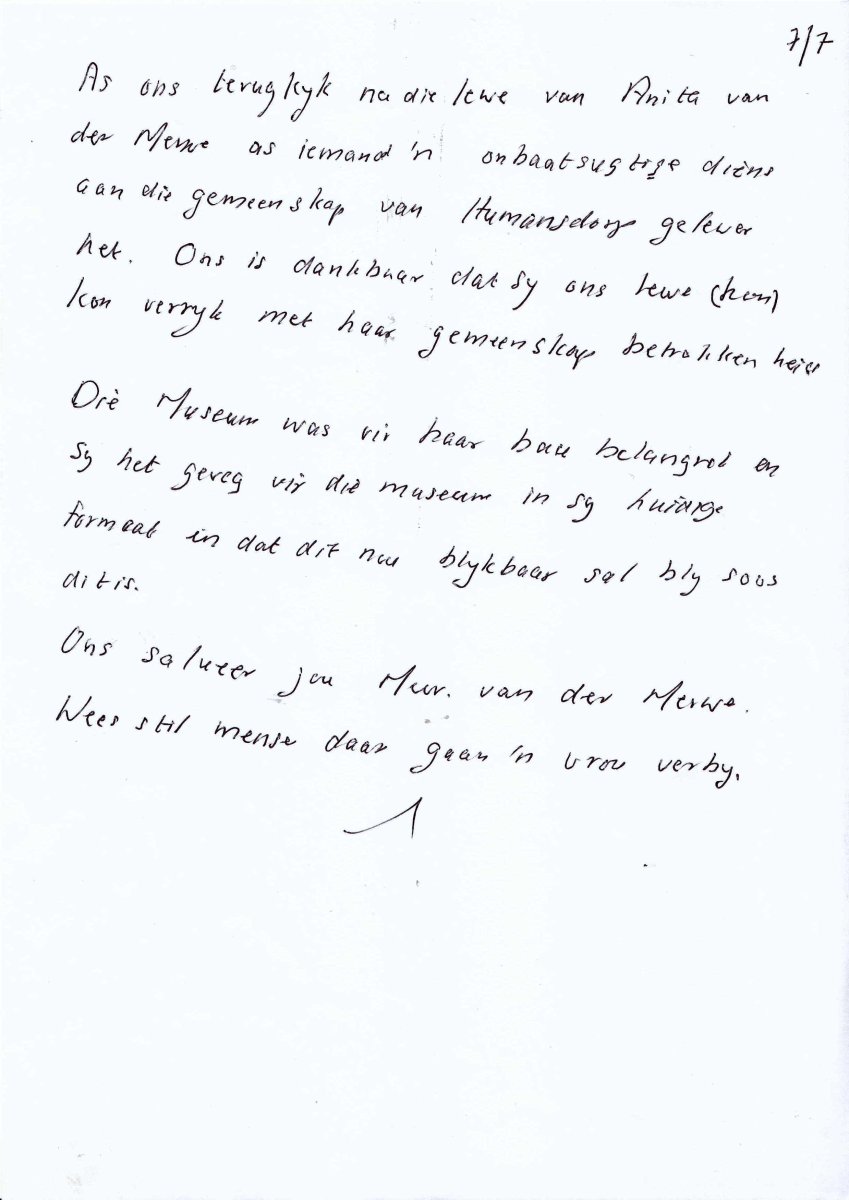 7/7
As ons terugkyk na die lewe van Anita van
der Merwe as iemand 'n onbaatsugtige diens
aan die gemeenskap van Humansdorp gelewer
het. Ons is dankbaar dat sy ons lewe (kon)
kon verryk met haar gemeenskap betrokken heid
Die Museum was vir haar baie belangrik en
sy het geveg vir die museum in sy huidige
formaat en dat dit nou blykbaar sal bly soos
dit is.
Ons salueer jou Mevr. van der Merwe.
Wees stil mense daar gaan 'n vrou verby.